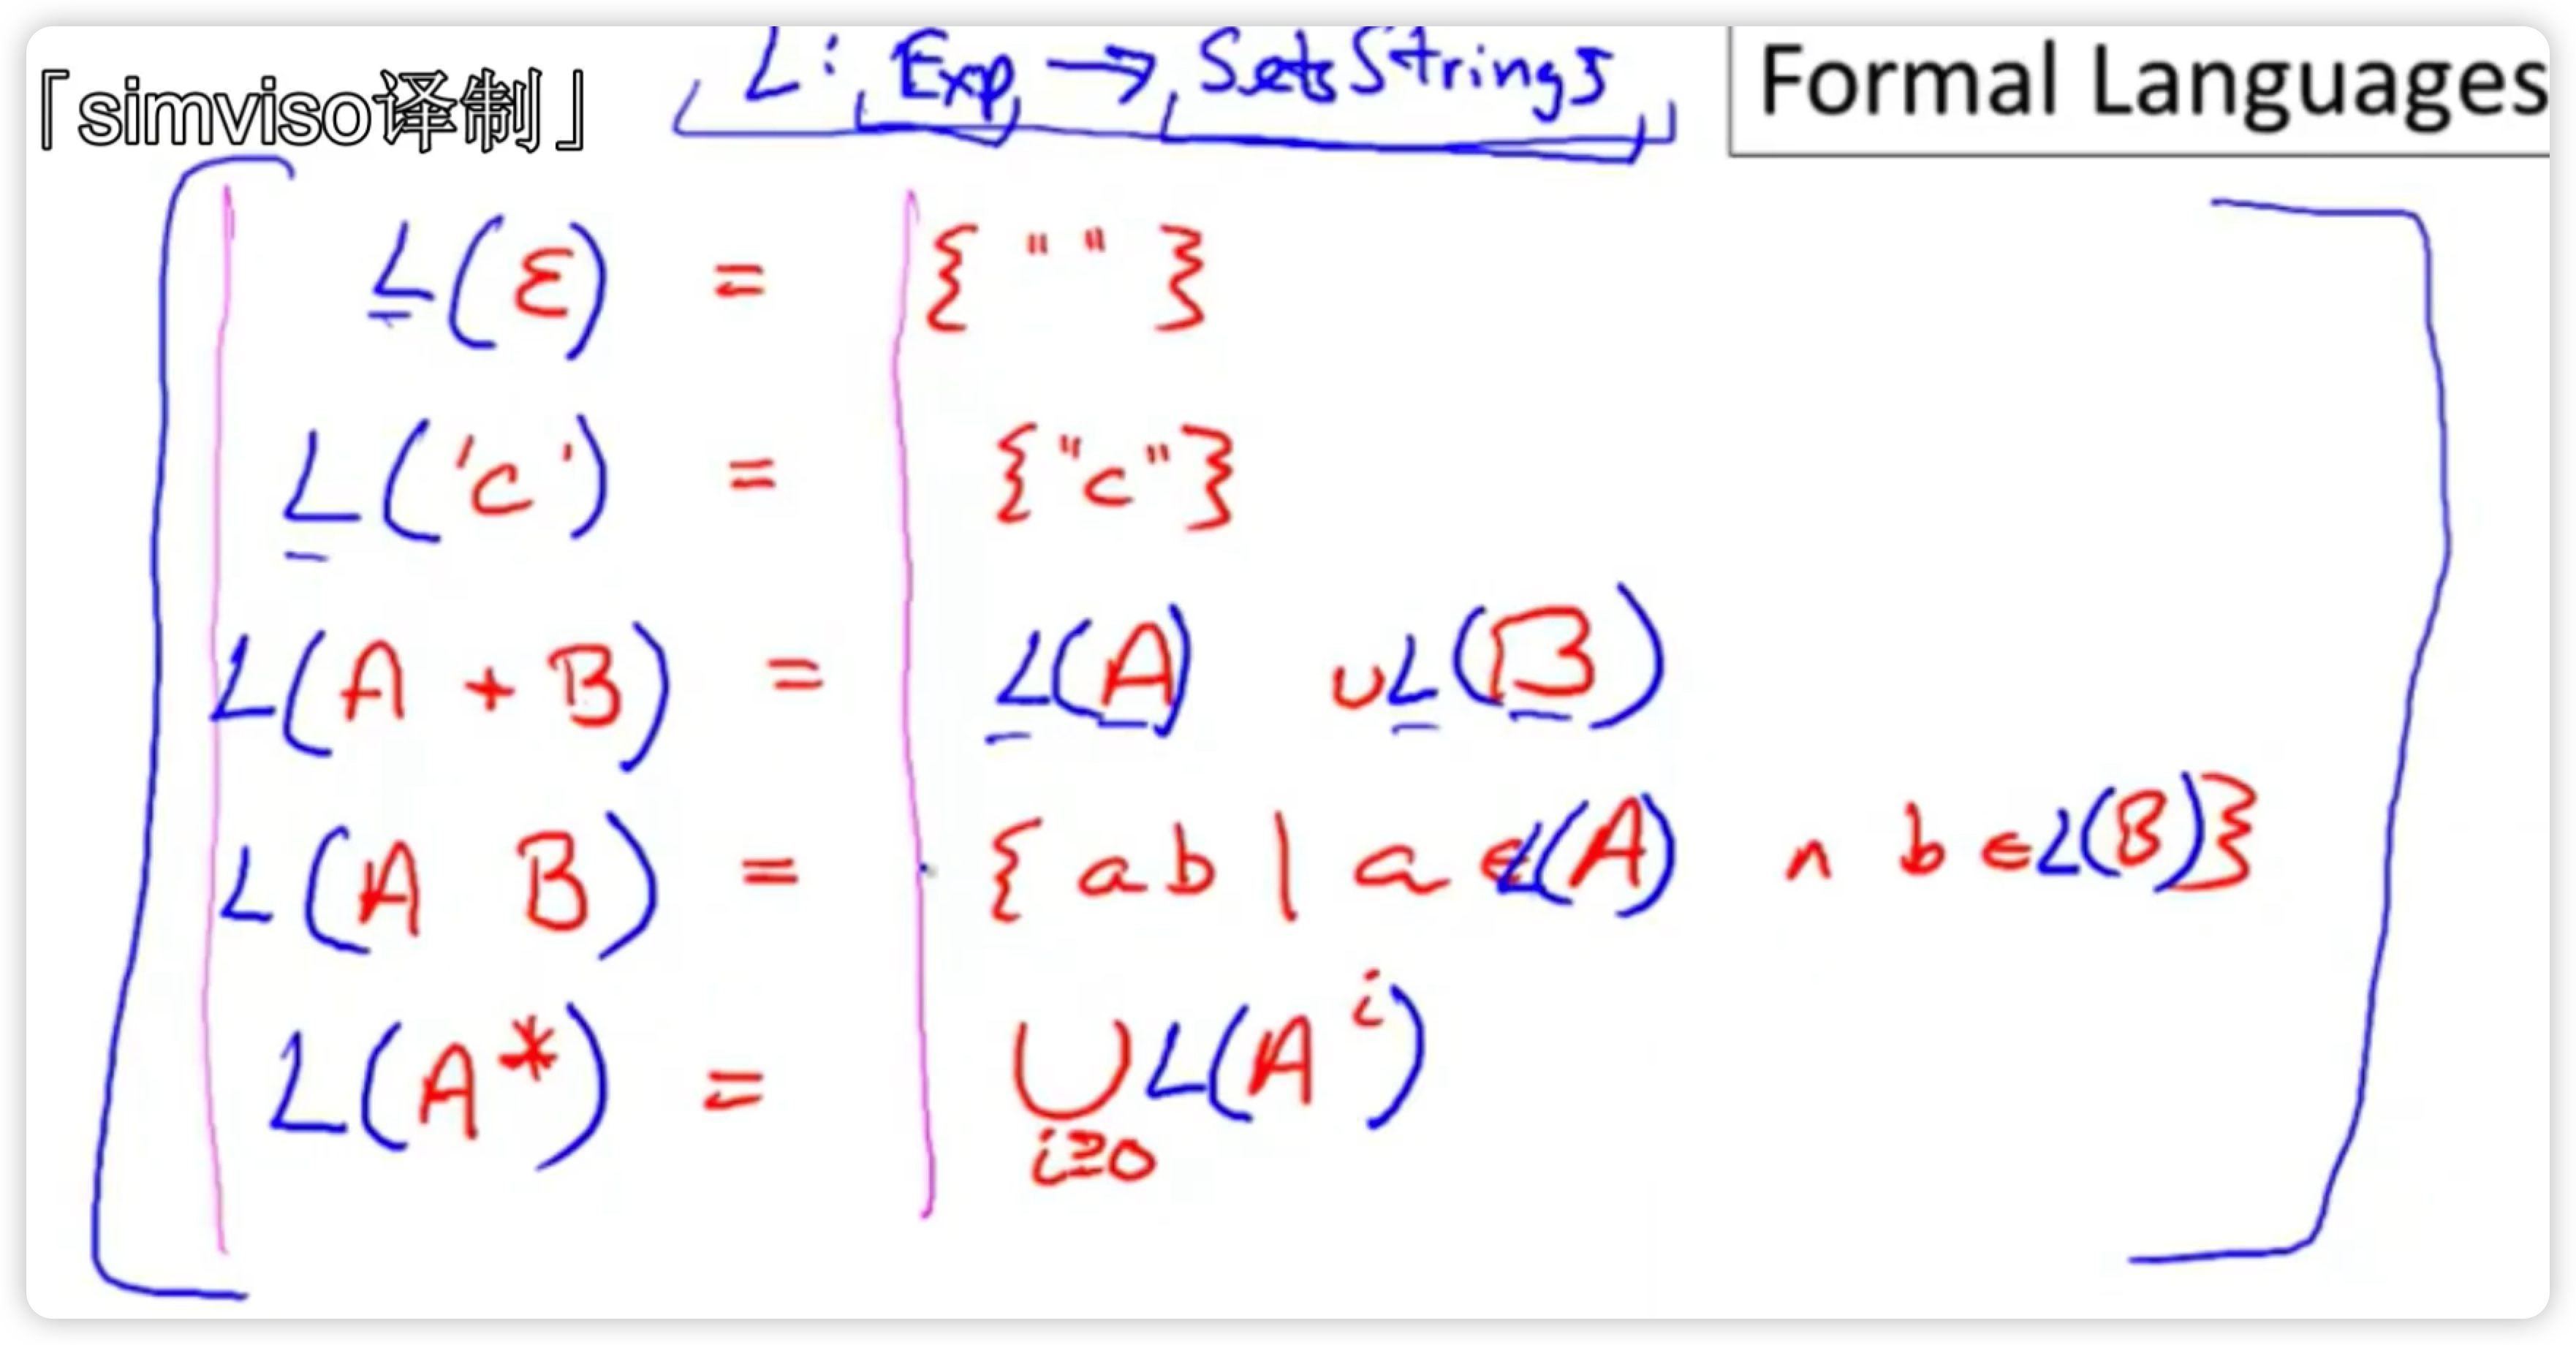 「simviso译制」
L: Exp → Sets Strings
Formal Languages
L(ε) = { " " }
L('c') = {"c"}
L(A + B) = L(A) ∪ L(B)
L(A B) = { ab | a ∈ L(A) ∧ b ∈ L(B)}
L(A*) = ⋃ L(Aⁱ)
i≥0